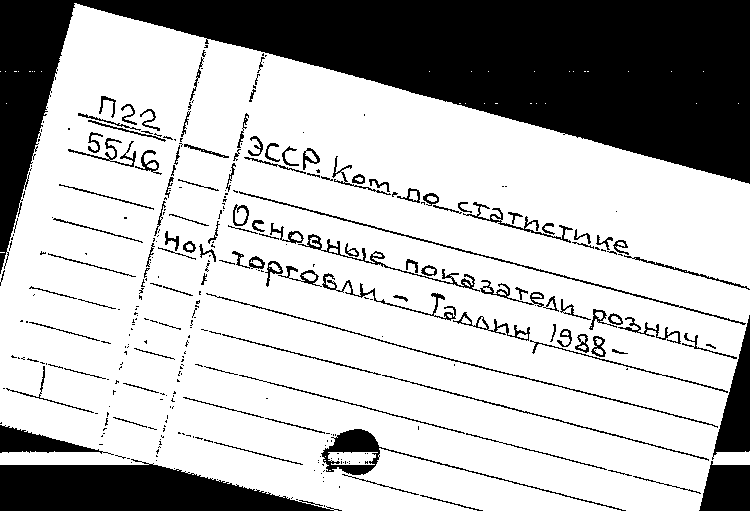 П22
5546
ЭССР. Ком. по статистике
Основные показатели рознич-
ной торговли. – Таллин, 1988–